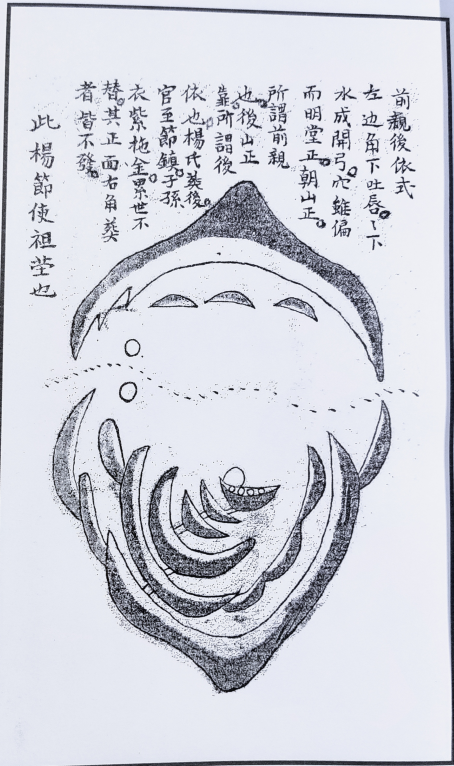 前親後依式
左边角下吐唇〻下
水成開弓穴雖偏
而明堂正朝山正
所謂前親
也後山正
靠所謂後
依也楊氏葬後
官至節鎮子孫
衣紫拖金累世不
替其正面右角葬
者皆不發
此楊節使祖塋也